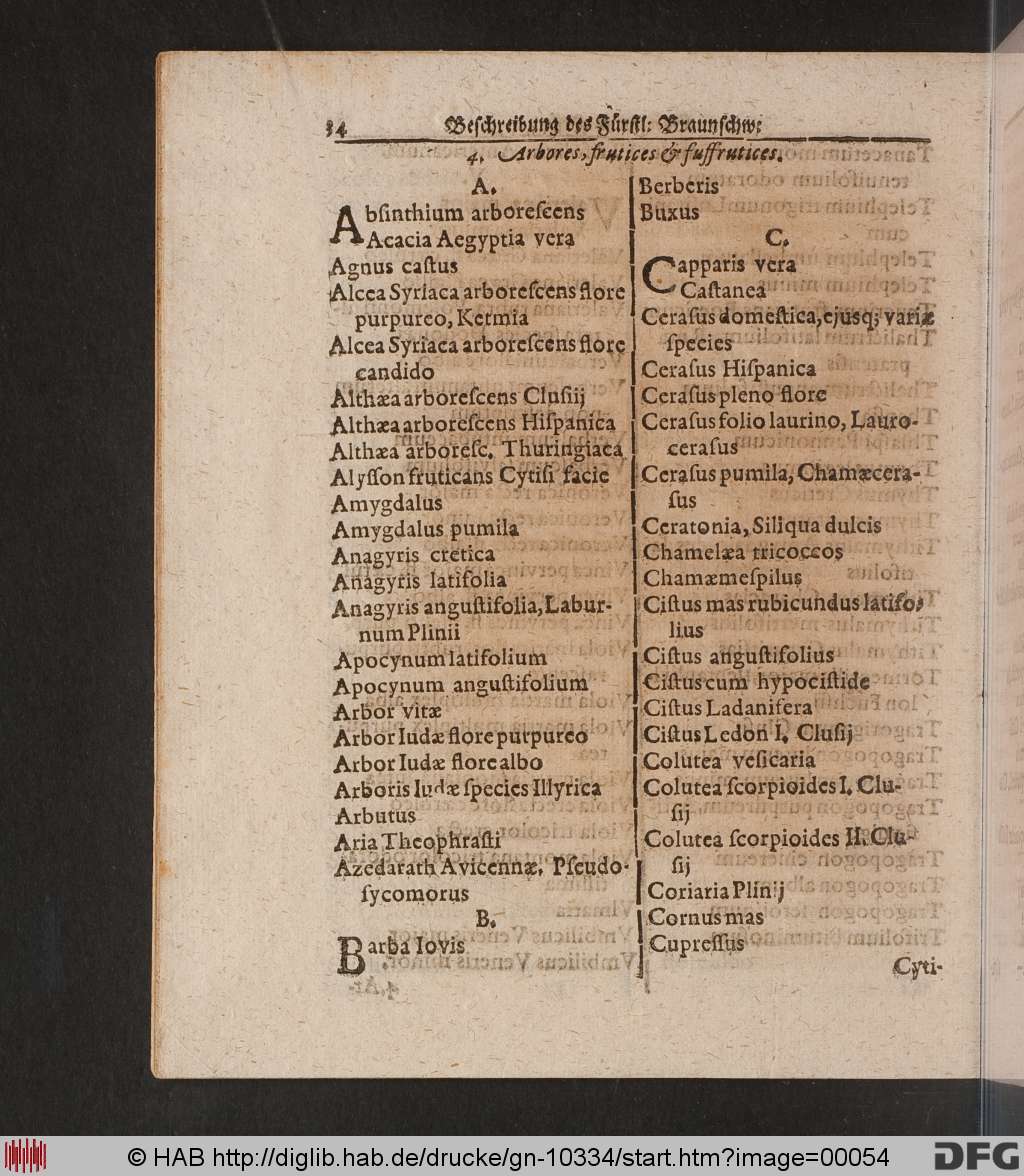 34 Beſchreibung des Fürſtl: Braunſchw:
4. Arbores, frutices & ſuffrutices.
A.
Abſinthium arboreſcens
Acacia Aegyptia vera
Agnus caſtus
Alcea Syriaca arboreſcens flore
purpureo, Ketmia
Alcea Syriaca arboreſcens flore
candido
Althæa arboreſcens Cluſiij
Althæa arboreſcens Hiſpanica
Althæa arboreſc. Thuringiaca
Alyſſon fruticans Cytiſi facie
Amygdalus
Amygdalus pumila
Anagyris cretica
Anagyris latifolia
Anagyris anguſtifolia, Labur-
num Plinii
Apocynum latifolium
Apocynum anguſtifolium
Arbor vitæ
Arbor Iudæ flore purpureo
Arbor Iudæ flore albo
Arboris Iudæ ſpecies Illyrica
Arbutus
Aria Theophraſti
Azedarath Avicennæ, Pſeudo-
ſycomorus
B.
Barba Iovis
Berberis
Buxus
C.
Capparis vera
Caſtanea
Ceraſus domeſtica, ejusq; variæ
ſpecies
Ceraſus Hiſpanica
Ceraſus pleno flore
Ceraſus folio laurino, Lauro-
ceraſus
Ceraſus pumila, Chamæcera-
ſus
Ceratonia, Siliqua dulcis
Chamelæa tricoccos
Chamæmeſpilus
Ciſtus mas rubicundus latifo-
lius
Ciſtus anguſtifolius
Ciſtus cum hypociſtide
Ciſtus Ladanifera
Ciſtus Ledon I. Cluſij
Colutea veſicaria
Colutea ſcorpioides I. Clu-
ſij
Colutea ſcorpioides II. Clu-
ſij
Coriaria Plinij
Cornus mas
Cupreſſus
Cyti-
© HAB http://diglib.hab.de/drucke/gn-10334/start.htm?image=00054
DFG